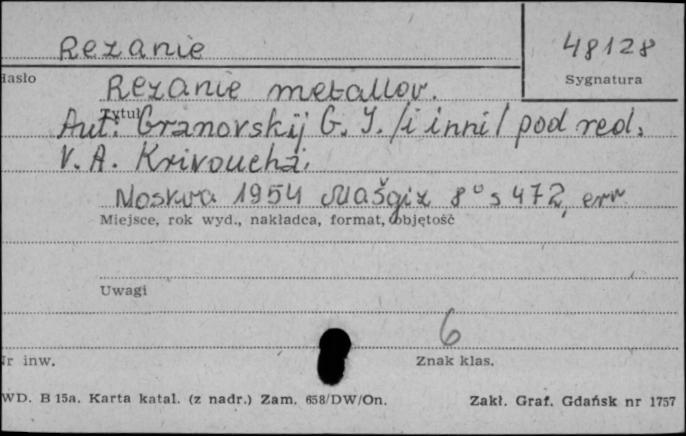 Rezanie
48128
Hasło
Sygnatura
Rezanie metallov.
Tytuł
Aut: Granovskij G. I. /i inni/ pod red.
V. A. Krivoucha.
Moskva 1954 Mašgiz 8° s 472, err
Miejsce, rok wyd., nakładca, format, objętość
Uwagi
6
Nr inw.
Znak klas.
WD. B 15a. Karta katal. (z nadr.) Zam. 658/DW/On.
Zakł. Graf. Gdańsk nr 1757